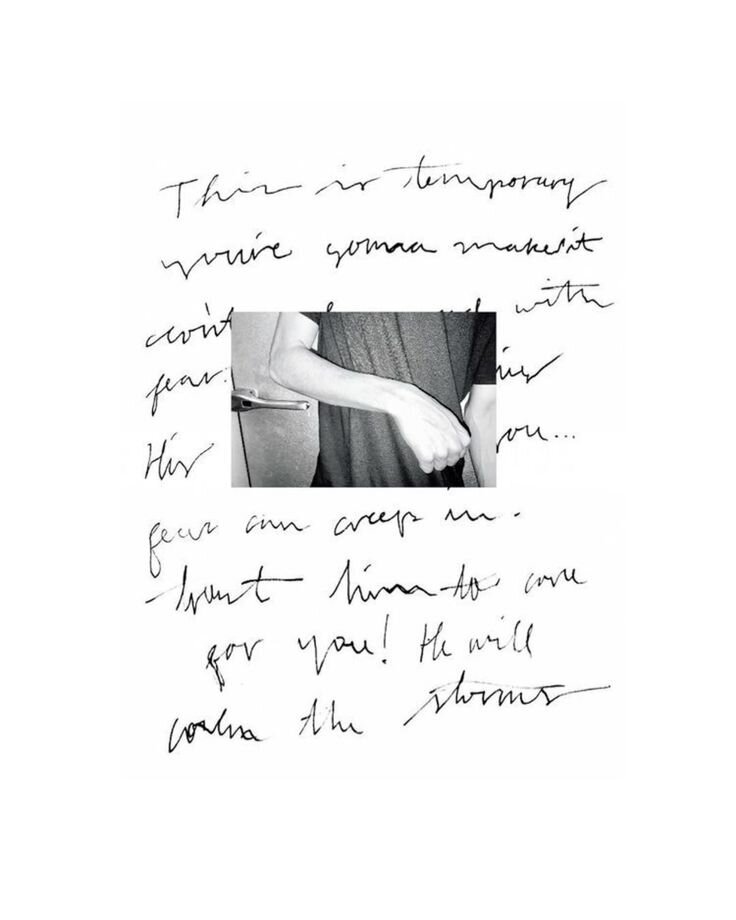 This is temporary
you're gonna make it
don't with
fear.
His you...
fear can creep in.
trust him to care
for you! He will
calm the storms